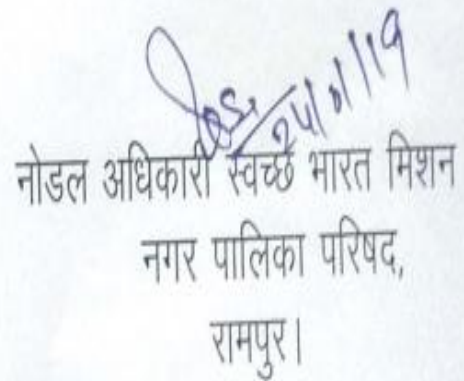 24/01/19
नोडल अधिकारी स्वच्छ भारत मिशन
नगर पालिका परिषद,
रामपुर।